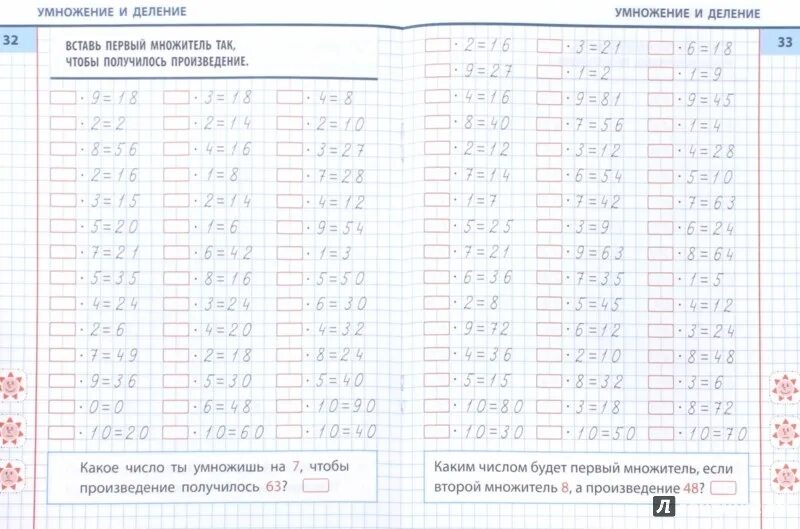 УМНОЖЕНИЕ И ДЕЛЕНИЕ
32
ВСТАВЬ ПЕРВЫЙ МНОЖИТЕЛЬ ТАК,
ЧТОБЫ ПОЛУЧИЛОСЬ ПРОИЗВЕДЕНИЕ.
· 9=18 · 3=18 · 4=8
· 2=2 · 2=14 · 2=10
· 8=56 · 4=16 · 3=27
· 2=16 · 1=8 · 7=28
· 3=15 · 2=14 · 4=12
· 5=20 · 1=6 · 9=54
· 7=21 · 6=42 · 1=3
· 5=35 · 8=16 · 5=50
· 4=24 · 3=24 · 6=30
· 2=6 · 4=20 · 4=32
· 7=49 · 2=18 · 8=24
· 9=36 · 5=30 · 5=40
· 0=0 · 6=48 · 10=90
· 10=20 · 10=60 · 10=40
Какое число ты умножишь на 7, чтобы
произведение получилось 63?
УМНОЖЕНИЕ И ДЕЛЕНИЕ
33
· 2=16 · 3=21 · 6=18
· 9=27 · 1=2 · 1=9
· 4=16 · 9=81 · 9=45
· 8=40 · 7=56 · 1=4
· 2=12 · 3=12 · 4=28
· 7=14 · 6=54 · 5=10
· 1=7 · 7=42 · 7=63
· 5=25 · 3=9 · 6=24
· 7=21 · 9=63 · 8=64
· 6=36 · 7=35 · 1=5
· 2=8 · 5=45 · 4=12
· 9=72 · 6=12 · 3=24
· 4=36 · 2=10 · 8=48
· 5=15 · 8=32 · 3=6
· 10=80 · 3=18 · 8=72
· 10=30 · 10=50 · 10=70
Каким числом будет первый множитель, если
второй множитель 8, а произведение 48?